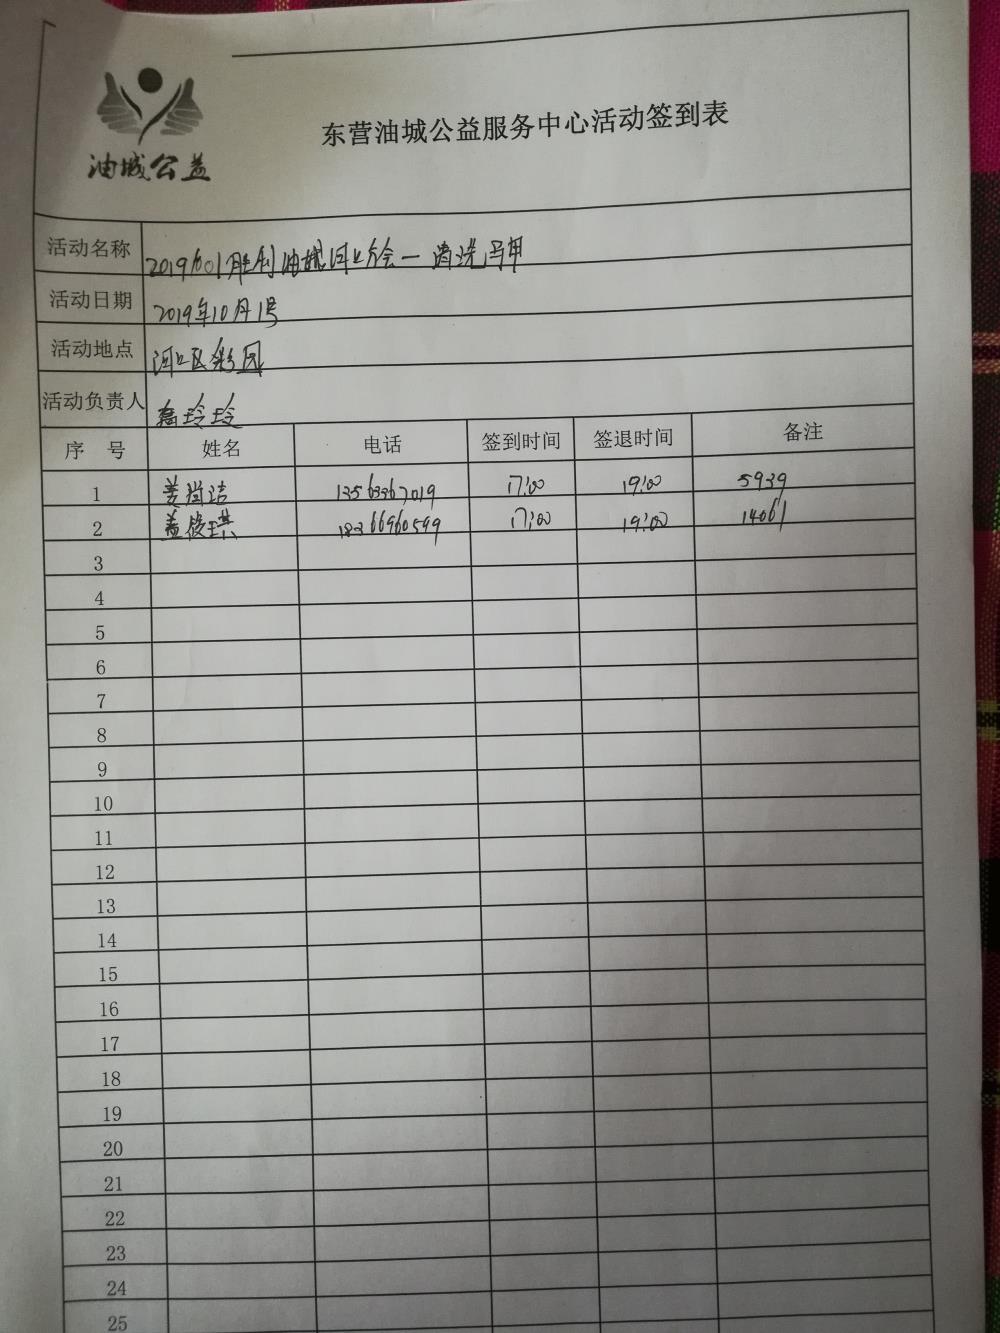 油城公益
东营油城公益服务中心活动签到表
活动名称 20191001胜利油城河口分会一清洗马甲
活动日期 2019年10月1号
活动地点 河口区彩园
活动负责人 玲玲
序 号 姓名 电话 签到时间 签退时间 备注
1 姜 洁 13563367019 17:00 19:00 5939
2 盖俊琪 18366960599 17:00 19:00 14061
3
4
5
6
7
8
9
10
11
12
13
14
15
16
17
18
19
20
21
22
23
24
25